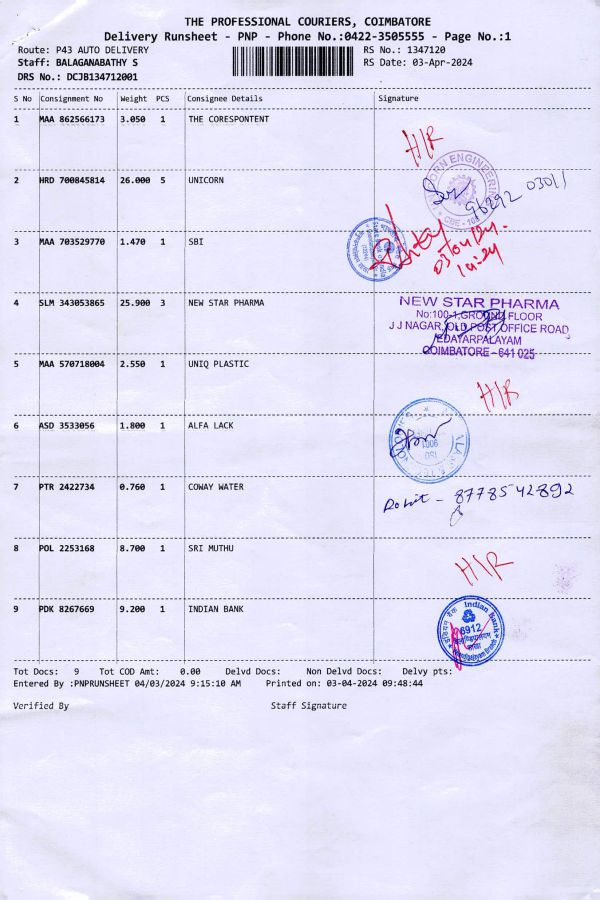 THE PROFESSIONAL COURIERS, COIMBATORE
Delivery Runsheet - PNP - Phone No.:0422-3505555 - Page No.:1
Route: P43 AUTO DELIVERY RS No.: 1347120
Staff: BALAGANABATHY S RS Date: 03-Apr-2024
DRS No.: DCJB134712001
S No Consignment No Weight PCS Consignee Details Signature
1 MAA 862566173 3.050 1 THE CORESPONTENT
H/R
2 HRD 700845814 26.000 5 UNICORN
ENGINEERING
CBE - 103
96292 03011
3 MAA 703529770 1.470 1 SBI
4 SLM 343053865 25.900 3 NEW STAR PHARMA
NEW STAR PHARMA
No:100-1,GROUND FLOOR
J J NAGAR, OLD POST OFFICE ROAD
EDAYARPALAYAM
COIMBATORE - 641 025
5 MAA 570718004 2.550 1 UNIQ PLASTIC
H/R
6 ASD 3533056 1.800 1 ALFA LACK
ISO
9001
7 PTR 2422734 0.760 1 COWAY WATER
Rohit - 87785 42892
8 POL 2253168 8.700 1 SRI MUTHU
H/R
9 PDK 8267669 9.200 1 INDIAN BANK
इंडियन बैंक Indian Bank
6912
Tot Docs: 9 Tot COD Amt: 0.00 Delvd Docs: Non Delvd Docs: Delvy pts:
Entered By :PNPRUNSHEET 04/03/2024 9:15:10 AM Printed on: 03-04-2024 09:48:44
Verified By Staff Signature